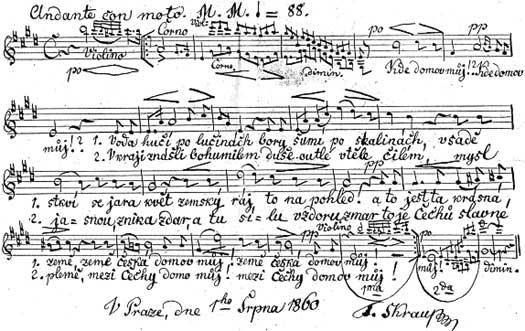 Andante con moto. M. M. ♩ = 88.
Corno Viol:
Violino Corno dimin. pp
po po Kde domov můj!? Kde domov
můj!? 1. Voda hučí po lučinách bory šumí po skalinách, v sadě
2. V kraji znáš-li bohumilém duše outlé v těle čilém, mysl
1. stkví se jara květ zemský ráj to na pohled! a to jest ta krásná,
2. ja=snou, znik a zdar, a tu si=lu vzdoru zmar to je Čechů slavné
Violino pp
1. země, země česká domov můj! země česká domov můj! můj! dimin.
2. plemě, mezi Čechy domov můj! mezi Čechy domov můj! 1ma 2da
V Praze, dne 1ho Srpna 1860 F. Škraup